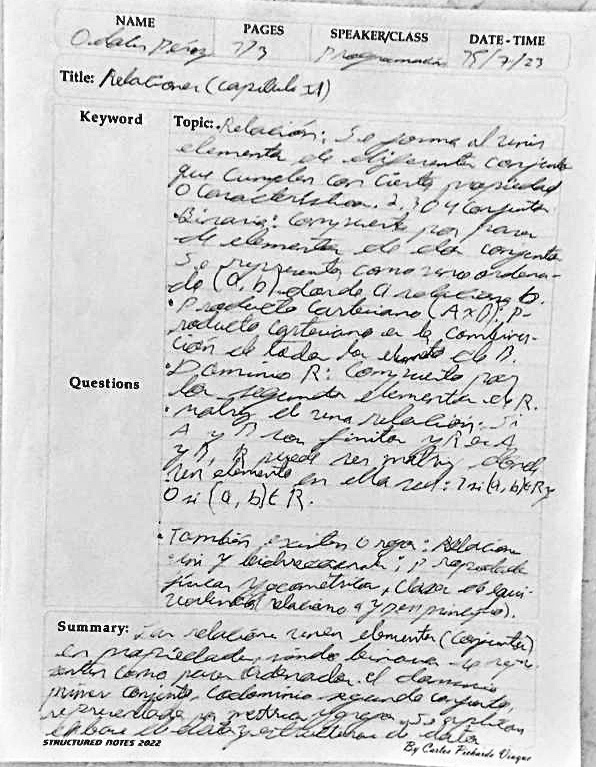 NAME PAGES SPEAKER/CLASS DATE - TIME
Pérez 1/3 /7/23
Title: Relaciones (capítulo II)
Keyword Topic: • Relación: Se forma al unir
elementos de diferentes conjuntos
que cumplen con cierta propiedad
o característica. 2, 3 o 4 conjuntos
• Binaria: Compuesta por pares
de elementos de dos conjuntos
Se representa como ordena-
do (a, b) donde a relaciona b.
• Producto Cartesiano (AxB): P-
roducto cartesiano es la combina-
ción de todos los de B.
• Dominio R: Compuesto por
los segundos elementos de R.
Questions
• Matriz de una relación: Si
A y B son finitos y R es A
y B, R puede ser matriz donde
un elemento en ella sea: 1 si (a, b) ∈ R y
0 si (a, b) ∈ R.
• También existen : Relación
uni y bidireccional; propiedades
físicas y geométricas, clases de equi-
valencia (relaciono a y b en).
Summary: Las relaciones unen elementos (conjuntos)
en propiedades, siendo binaria se repre-
sentan como pares ordenados, el dominio
primer conjunto, codominio segundo conjunto,
representado en matrices y se aplican
en base de datos y estructuras de datos
STRUCTURED NOTES 2022 By Carlos Pichardo Vicque